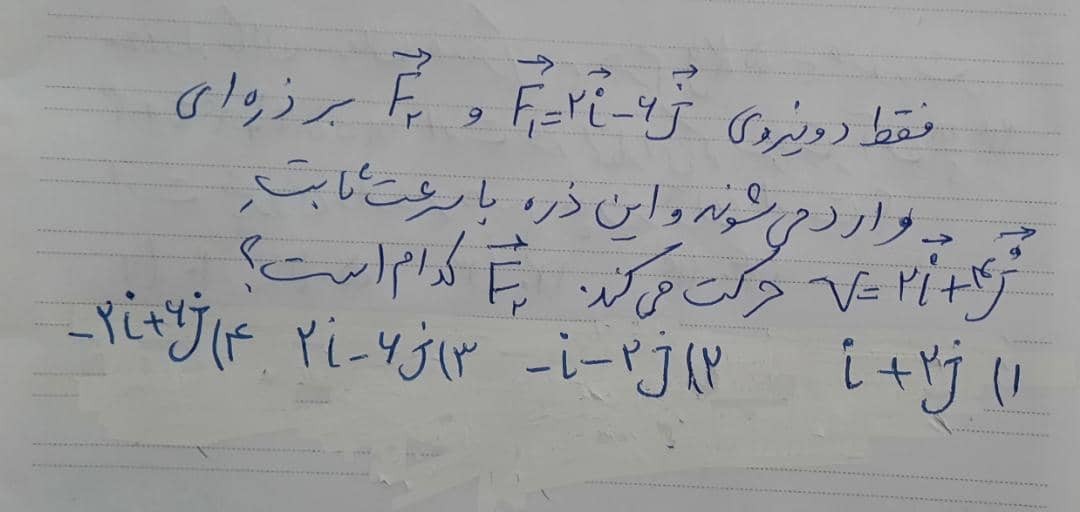 فقط دو نیروی F₁=۲i-۶j و F₂ بر ذره‌ای
وارد می‌شوند و این ذره با سرعت ثابتِ
V=۲i+۴j حرکت می‌کند. F₂ کدام است؟
۱) i+۲j ۲) -i-۲j ۳) ۲i-۶j ۴) -۲i+۶j